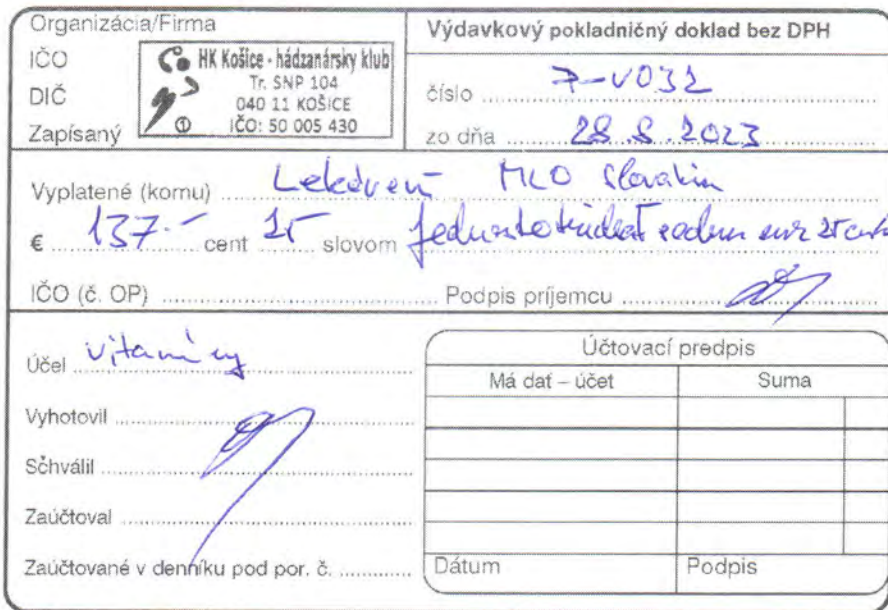 Organizácia/Firma
IČO
DIČ
Zapísaný
HK Košice - hádzanársky klub
Tr. SNP 104
040 11 KOŠICE
IČO: 50 005 430
①
Výdavkový pokladničný doklad bez DPH
číslo 7-V032
zo dňa 28.8.2023
Vyplatené (komu) Lekáreň MLO Slovakia
€ 137.- cent 25 slovom
IČO (č. OP) Podpis príjemcu
Účel vitamíny
Vyhotovil
Schválil
Zaúčtoval
Zaúčtované v denníku pod por. č.
Účtovací predpis
Má dať – účet Suma
Dátum Podpis